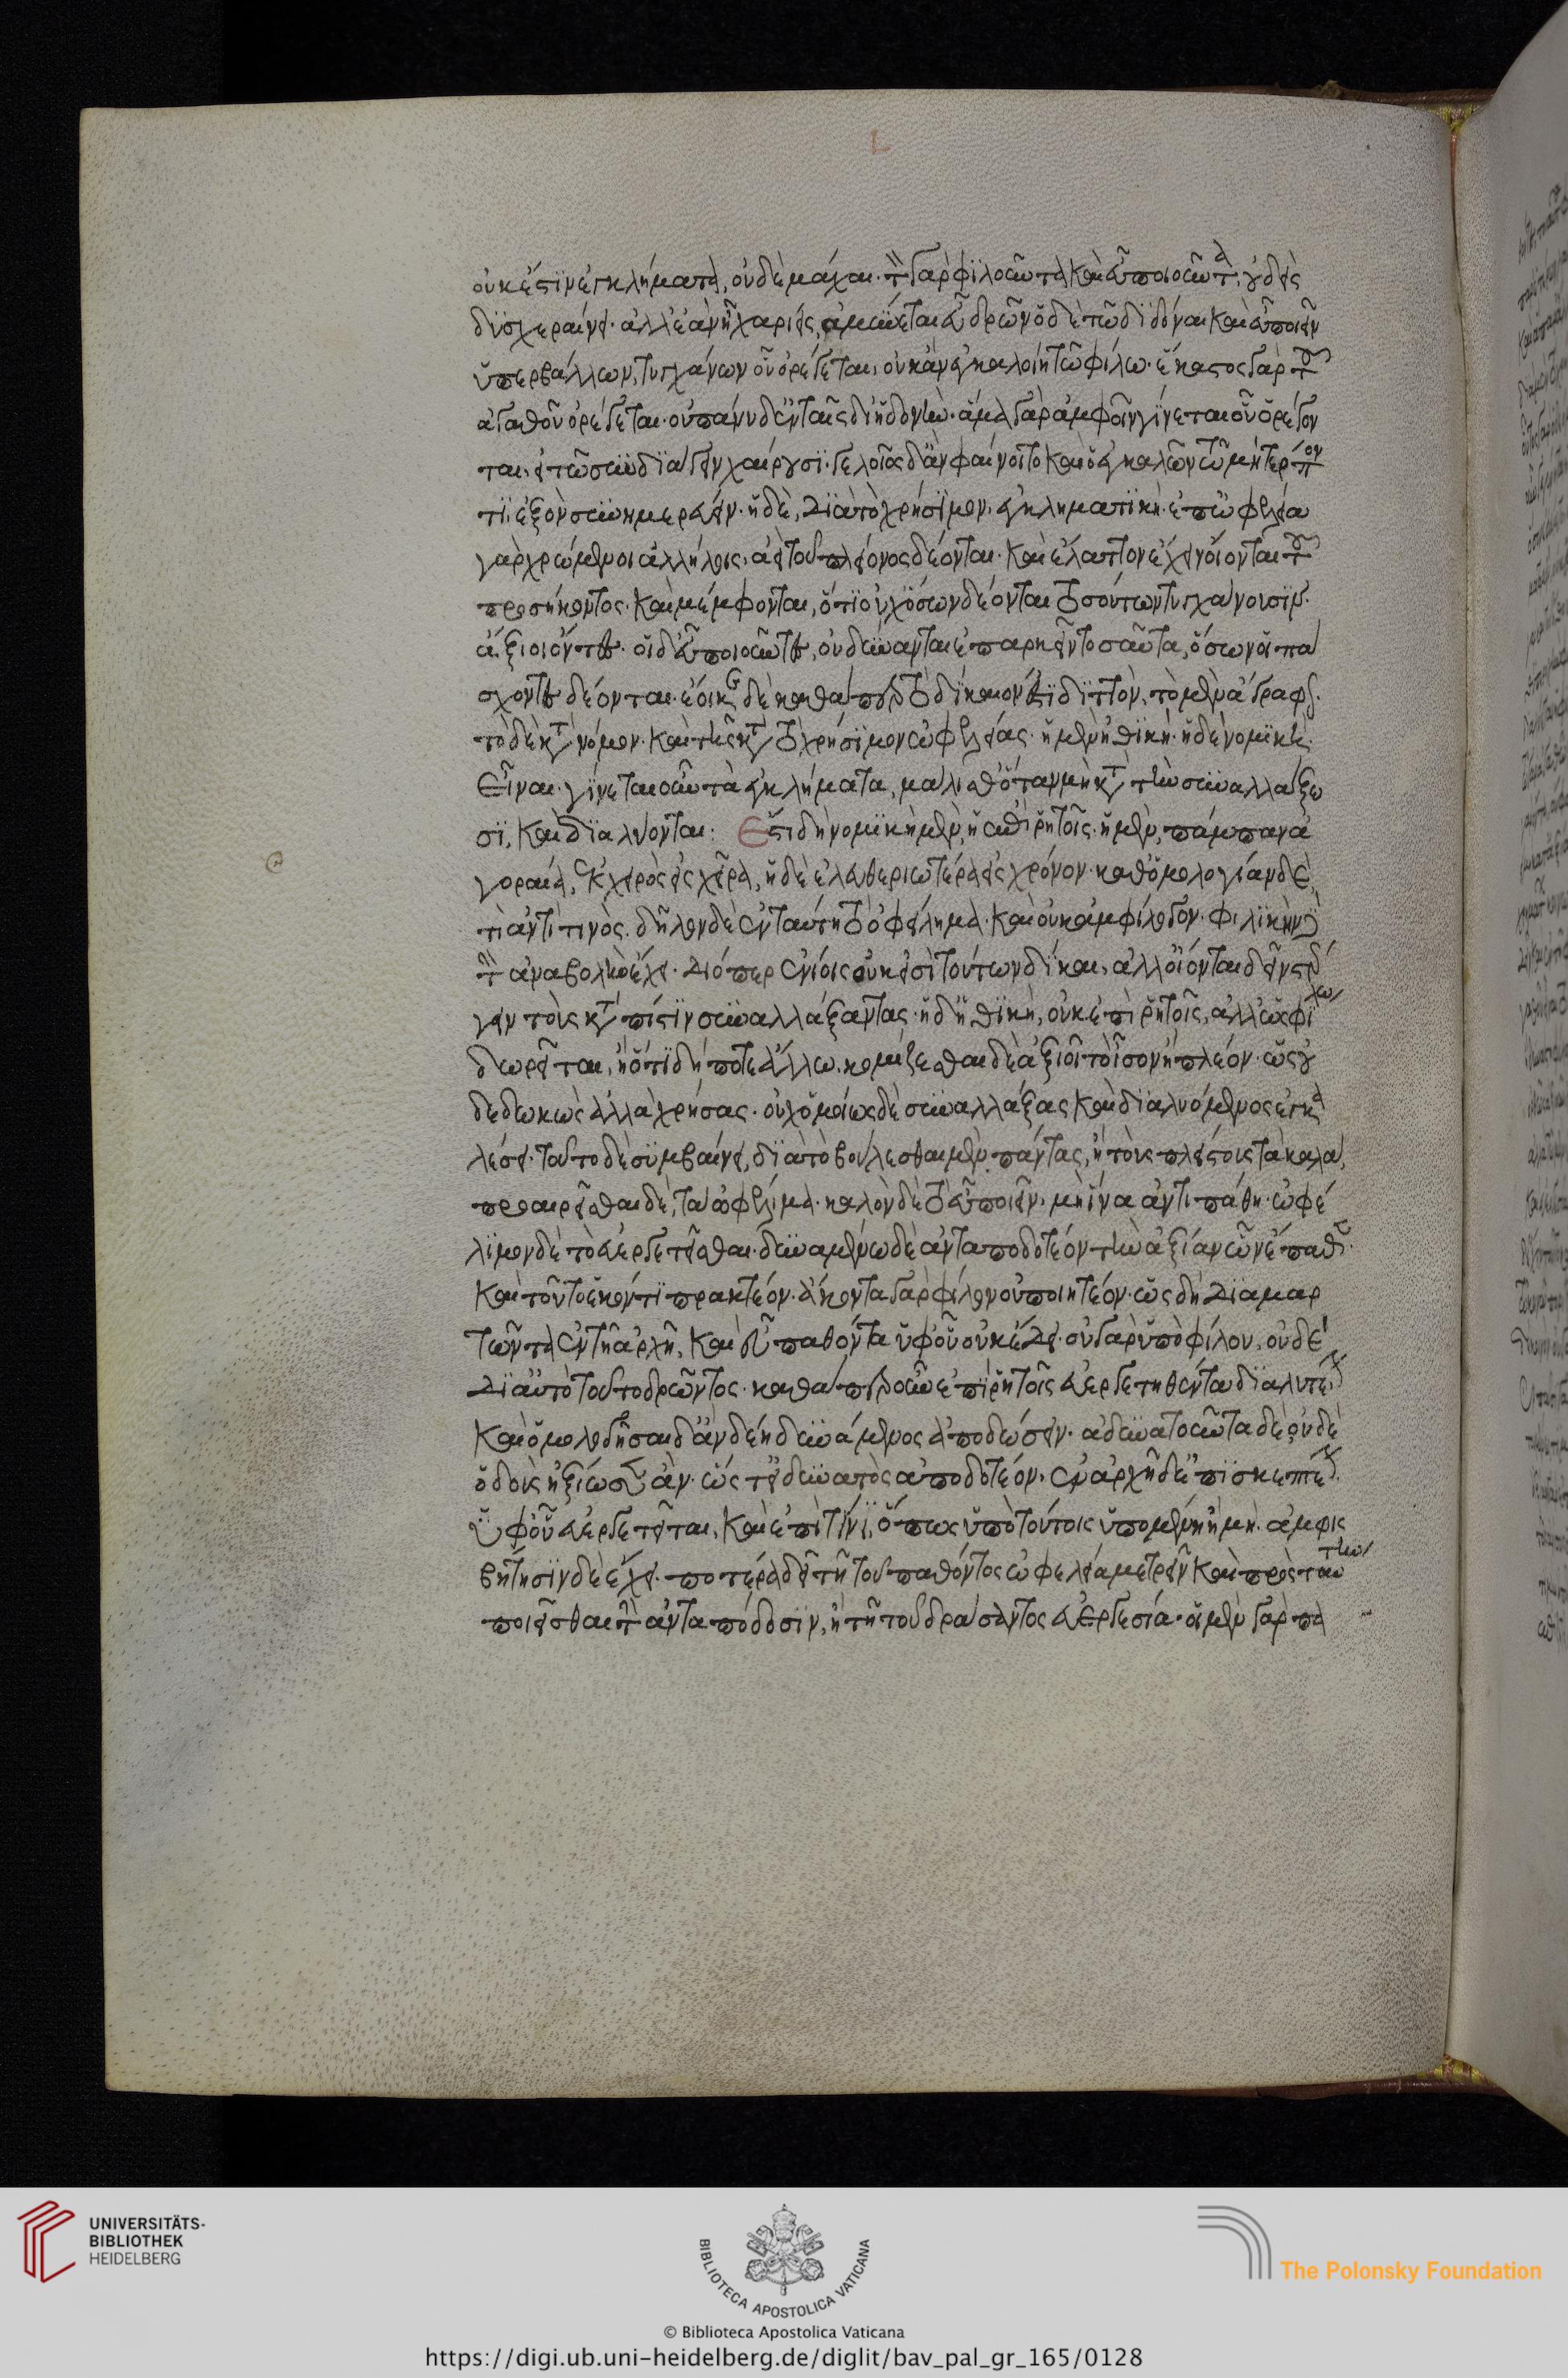 οὐκ ἔστιν ἐγκλήματα, οὐδὲ μάχαι· τὸν γὰρ φιλοῦντα καὶ εὖ ποιοῦντα, οὐδεὶς
δυσχεραίνει· ἀλλ' ἐὰν ἦ χαρίεις, ἀμύνεται εὖ δρῶν· ὁ δὲ τῶ διδόναι καὶ εὖ ποιεῖν
ὑπερβάλλων, τυγχάνων οὗ ὀρέγεται, οὐκ ἂν ἐγκαλοίη τῶ φίλω· ἕκαστος γὰρ τοῦ
ἀγαθοῦ ὀρέγεται· οὐ πάνυ δ' ἐν ταῖς δι' ἡδονήν· ἅμα γὰρ ἀμφοῖν γίνεται οὗ ὀρέγον
ται, εἰ τῶ συνδιάγειν χαίρουσι· γελοῖος δ' ἂν φαίνοιτο καὶ ὁ ἐγκαλῶν τῶ μὴ τέρποντι
τι, ἐξὸν συνημερεύειν· ἡ δὲ, διὰ τὸ χρήσιμον, ἐγκληματική· ἐπ' ὠφελεία
γὰρ χρώμενοι ἀλλήλοις, ἀεὶ τοῦ πλείονος δέονται· καὶ ἔλαττον ἔχειν οἴονται τοῦ
προσήκοντος· καὶ μέμφονται, ὅτι οὐχ ὅσων δέονται τοσούτων τυγχάνουσιν·
ἄξιοι ὄντες· οἱ δ' εὖ ποιοῦντες, οὐ δύνανται ἐπαρκεῖν τοσαῦτα, ὅσων οἱ πά
σχοντες δέονται· ἔοικε δὲ καθάπερ τὸ δίκαιόν ἐστι διττόν, τὸ μὲν ἄγραφον·
τὸ δὲ κατὰ νόμον· καὶ τῆς κατὰ τὸ χρήσιμον ὠφελείας· ἡ μὲν ἠθική· ἡ δὲ νομική·
εἶναι· γίνεται οὖν τὰ ἐγκλήματα, μάλισθ' ὅταν μὴ κατὰ τὴν συναλλάξω
σι, καὶ διαλύονται: Ἔστι δὴ νομικὴ μὲν, ἡ ἐπὶ ῥητοῖς· ἡ μὲν, πάμπαν ἀ
γοραία, ἐκ χειρὸς εἰς χεῖρα, ἡ δὲ ἐλευθεριωτέρα εἰς χρόνον· καθ' ὁμολογίαν δὲ,
τὶ ἀντὶ τινός· δῆλον δὲ ἐν ταύτη τὸ ὀφείλημα· καὶ οὐκ ἀμφίλογον· φιλικὴν δὲ
τὴν ἀναβολὴν ἔχει· διόπερ ἐνίοις οὐκ εἰσὶ τούτων δίκαι, ἀλλ' οἴονται δεῖν στέρ
γειν τοὺς κατὰ πίστιν συναλλάξαντας· ἡ δ' ἠθική, οὐκ ἐπὶ ῥητοῖς, ἀλλ' ὡς φίλω
δωρεῖται, ἢ ὁτιδήποτε ἄλλω· κομίζεσθαι δὲ ἀξιοῖ τὸ ἴσον ἢ πλέον· ὡς οὐ
δεδωκὼς ἀλλὰ χρήσας· οὐχ ὁμοίως δὲ συναλλάξας καὶ διαλυόμενος ἐγκα
λέσει· τοῦτο δὲ συμβαίνει, διὰ τὸ βούλεσθαι μὲν πάντας, ἢ τοὺς πλείστους τὰ καλά,
προαιρεῖσθαι δὲ, τὰ ὠφέλιμα· καλὸν δὲ τὸ εὖ ποιεῖν, μὴ ἵνα ἀντιπάθη· ὠφέ
λιμον δὲ τὸ εὐεργετεῖσθαι· δυναμένω δὲ ἀνταποδοτέον τὴν ἀξίαν ὧν ἔπαθεν·
καὶ τοῦτο ἑκόντι πρακτέον· ἄκοντα γὰρ φίλον οὐ ποιητέον· ὡς δὴ διαμαρ
τῶντα ἐν τῆ ἀρχῆ, καὶ εὖ παθόντα ὑφ' οὗ οὐκ ἔδει· οὐ γὰρ ὑπὸ φίλου, οὐδὲ
δι' αὐτὸ τοῦτο δρῶντος· καθάπερ οὖν ἐπὶ ῥητοῖς εὐεργετηθέντα διαλυτέον
καὶ ὁμολογῆσαι δ' ἂν δέη δυνάμενος ἀποδώσειν· ἀδυνατοῦντα δὲ οὐδὲ
ὁ δοὺς ἠξίωσεν ἄν· ὥστ' εἰ δυνατὸς ἀποδοτέον· ἐν ἀρχῆ δ' ἐπισκεπτέον
ὑφ' οὗ εὐεργετεῖται, καὶ ἐπὶ τίνι, ὅπως ὑπὸ τούτοις ὑπομένη ἢ μή· ἀμφισ
βήτησιν δὲ ἔχει· πότερα δεῖ τῆ τοῦ παθόντος ὠφελεία μετρεῖν καὶ πρὸς ταύτην
ποιεῖσθαι τὴν ἀνταπόδοσιν, ἢ τῆ τοῦ δράσαντος εὐεργεσία· οἱ μὲν γὰρ πα
UNIVERSITÄTS-
BIBLIOTHEK
HEIDELBERG
BIBLIOTECA APOSTOLICA VATICANA
The Polonsky Foundation
© Biblioteca Apostolica Vaticana
https://digi.ub.uni-heidelberg.de/diglit/bav_pal_gr_165/0128